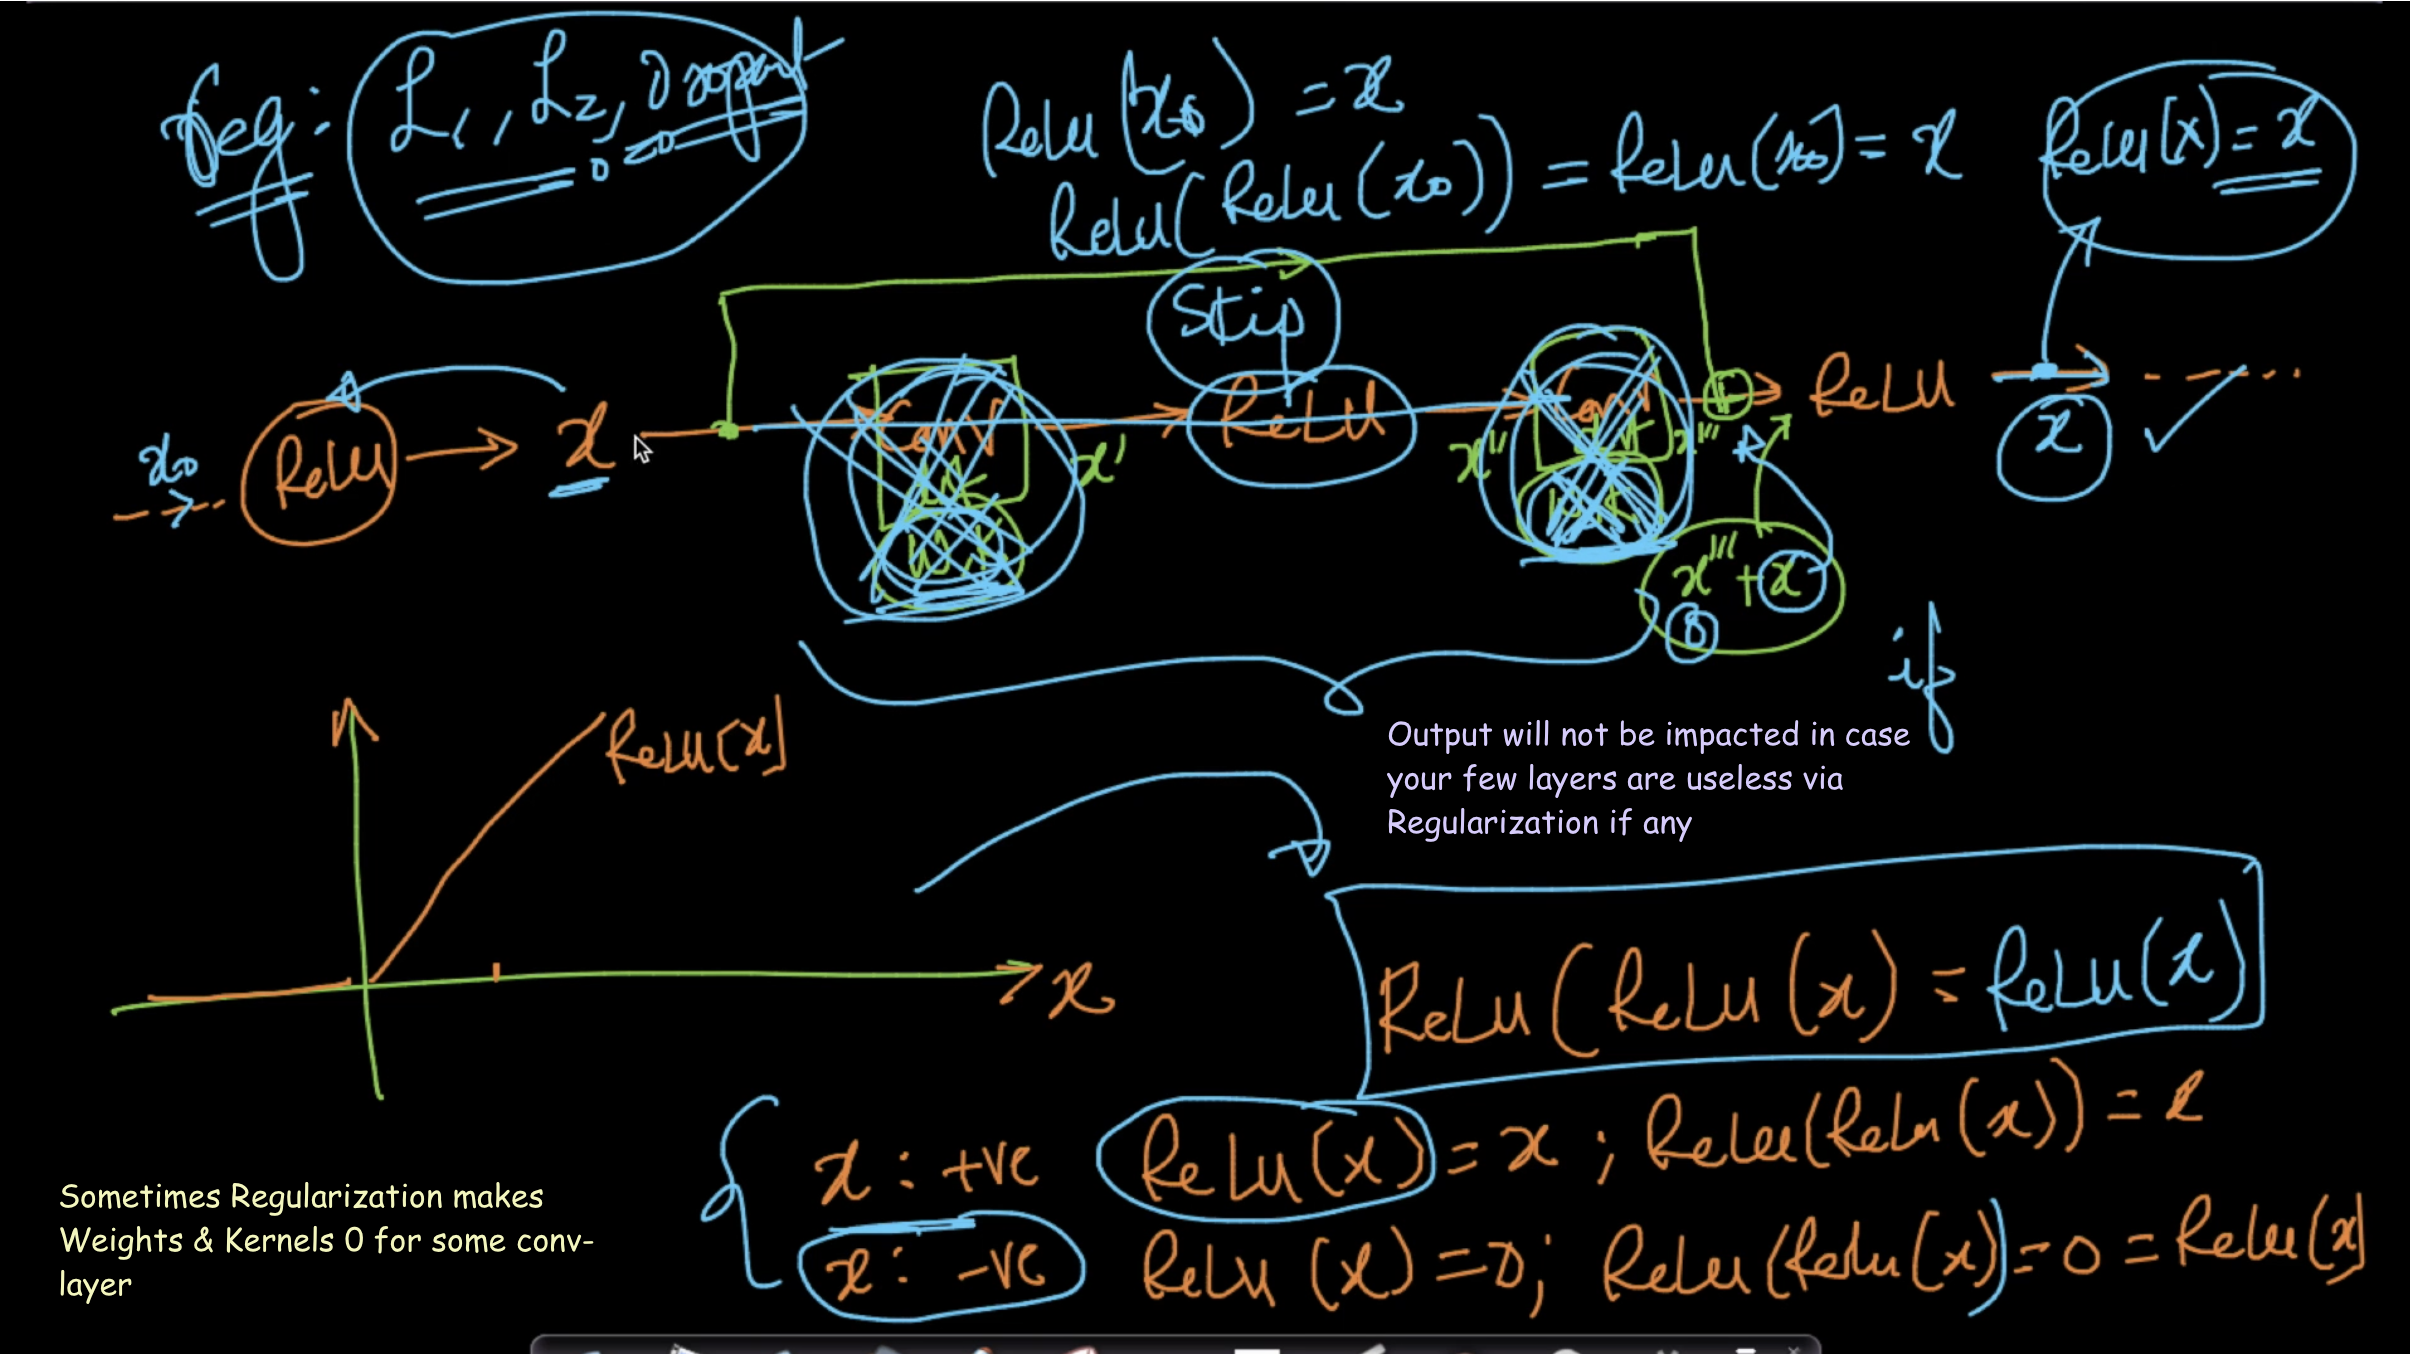 Reg: L1, L2, Dropout
ReLU(x0) = x
ReLU(ReLU(x0)) = ReLU(x0) = x
ReLU(x) = x
Skip
x0
ReLU
x
Conv
x'
ReLU
x''
Conv
x'''
+
ReLU
x
x''' + x
0
if
ReLU(x)
x
Output will not be impacted in case
your few layers are useless via
Regularization if any
ReLU(ReLU(x) = ReLU(x)
x : +ve ReLU(x) = x ; ReLU(ReLU(x)) = x
x : -ve ReLU(x) = 0; ReLU(ReLU(x)) = 0 = ReLU(x)
Sometimes Regularization makes
Weights & Kernels 0 for some conv-
layer